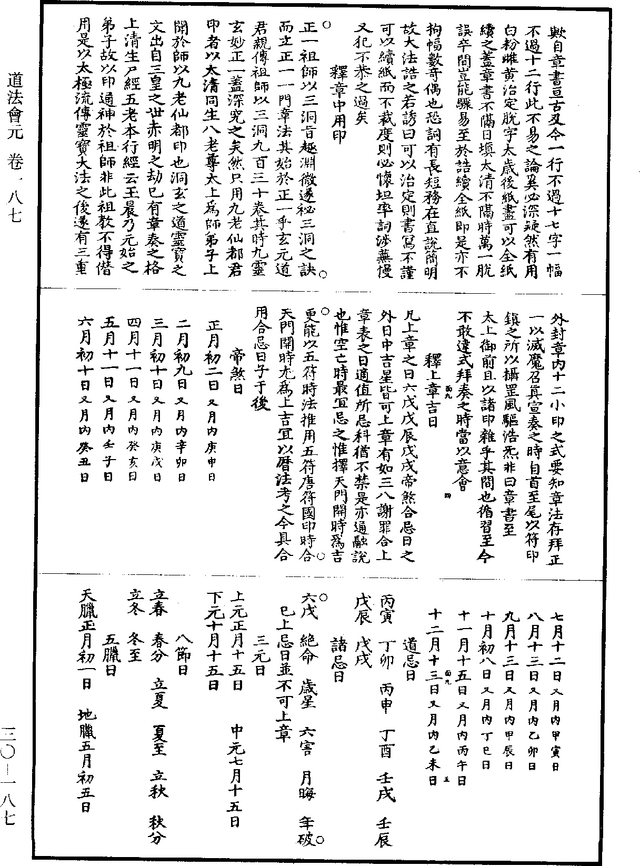 歟自章書亘古及今一行不過十七字一幅
不過十二行此不易之論奚必深疑然有用
白粉雌黃治定脫字太歲後紙盡可以全紙
續之蓋章書不隔日填太清不隔時萬一脫
誤卒間豈能驟易至於誥續全紙即是亦不
拘幅數奇偶也恐詞有長短務在直說簡明
故大法誥之若謗曰可以治定則書寫不謹
可以續紙而不裁度則必懷坦率詞涉蕪慢
又犯不恭之過矣
釋章中用印
正一祖師以三洞旨趣淵微遂祕三洞之訣
而立正一一門章法其始於正一乎玄元道
君親傳祖師以三洞九百三十卷其時九靈
玄妙正一蓋深究之矣然只用九老仙都君
印者以太清同生八老尊太上為師弟子上
聞於師以九老仙都印也洞玄之道靈寶之
文出自三皇之世赤明之劫已有章奏之格
上清生尸經五老本行經云玉晨乃元始之
弟子故以印通神於祖師非此祖教不得偕
用是以太極流傳靈寶大法之後遂有三重
外封章內十二小印之式要知章法存拜正
一以滅魔召真宣奏之時自首至尾以符印
鎮之所以攝罡風驅浩炁非曰章書至
太上御前且以諸印雜乎其間也循習至今
不敢違式拜奏之時當以意會
釋上章吉日
凡上章之日六戊戊辰戊戌帝煞合忌日之
外日中吉星皆可上章有如三八謝罪合上
章表之日適值所忌科猶不禁是亦通融說
也惟空亡時最宜忌之惟擇天門開時為吉
更能以五符時法推用五符唐符國印時合
天門開時尤為上吉宜以曆法考之今具合
用合忌日子于後
帝煞日
正月初二日又月內庚申日
二月初九日又月內辛卯日
三月初十日又月內庚戌日
四月十一日又月內癸亥日
五月十一日又月內壬子日
六月初十日又月內癸丑日
七月十二日又月內甲寅日
八月十三日又月內乙卯日
九月十三日又月內甲辰日
十月初八日又月內丁巳日
十一月十五日又月內丙午日
十二月十三日又月內乙未日
道忌日
丙寅 丁卯 丙申 丁酉 壬戌 壬辰
戊辰 戊戌
諸忌日
六戊 絕命 歲星 六害 月晦 年破
已上忌日並不可上章
三元日
上元正月十五日 中元七月十五日
下元十月十五日
八節日
立春 春分 立夏 夏至 立秋 秋分
立冬 冬至
五臘日
天臘正月初一日 地臘五月初五日
道法會元 卷一八七
三〇—一八七